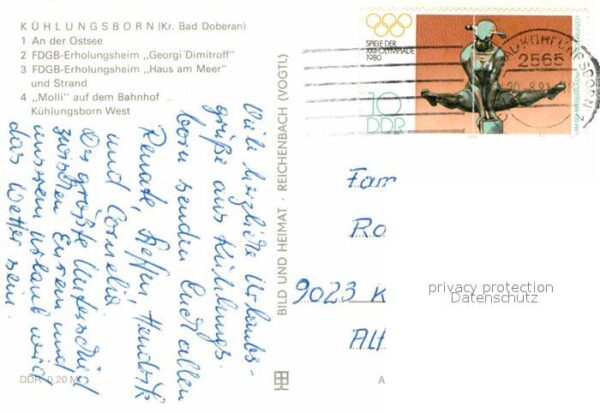 KÜHLUNGSBORN (Kr. Bad Doberan)
1 An der Ostsee
2 FDGB-Erholungsheim „Georgi Dimitroff"
3 FDGB-Erholungsheim „Haus am Meer"
und Strand
4 „Molli" auf dem Bahnhof
Kühlungsborn West
Viele herzliche Urlaubs-
grüße aus Kühlungs-
born senden Euch allen
Renate, Steffen, Hendrik
und Cornelia
Der größte Unterschied
zwischen Eurem und
unserem Urlaub wird
das Wetter sein.
DDR 0,20 M
BILD UND HEIMAT · REICHENBACH (VOGTL)
SPIELE DER
XXII. OLYMPIADE
1980
10
DDR
2565
Fam
Ro
9023 K
Alt
privacy protection
Datenschutz
A